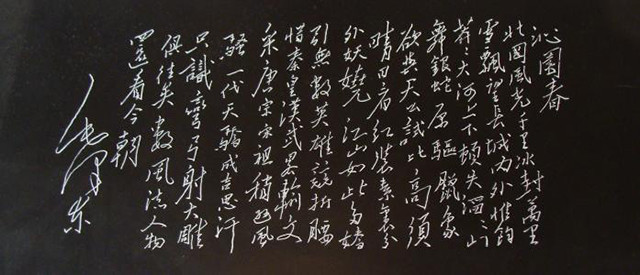 沁園春
北國風光千里冰封萬里
雪飄望長城内外惟餘
莽々大河上下頓失滔々山
舞銀蛇原驅臘象
欲與天公試比高須
晴日看紅裝素裹分
外妖嬈江山如此多嬌
引無數英雄競折腰
惜秦皇漢武略輸文
采唐宗宋祖稍遜風
騷一代天驕成吉思汗
只識彎弓射大雕
俱往矣數風流人物
還看今朝
毛澤东